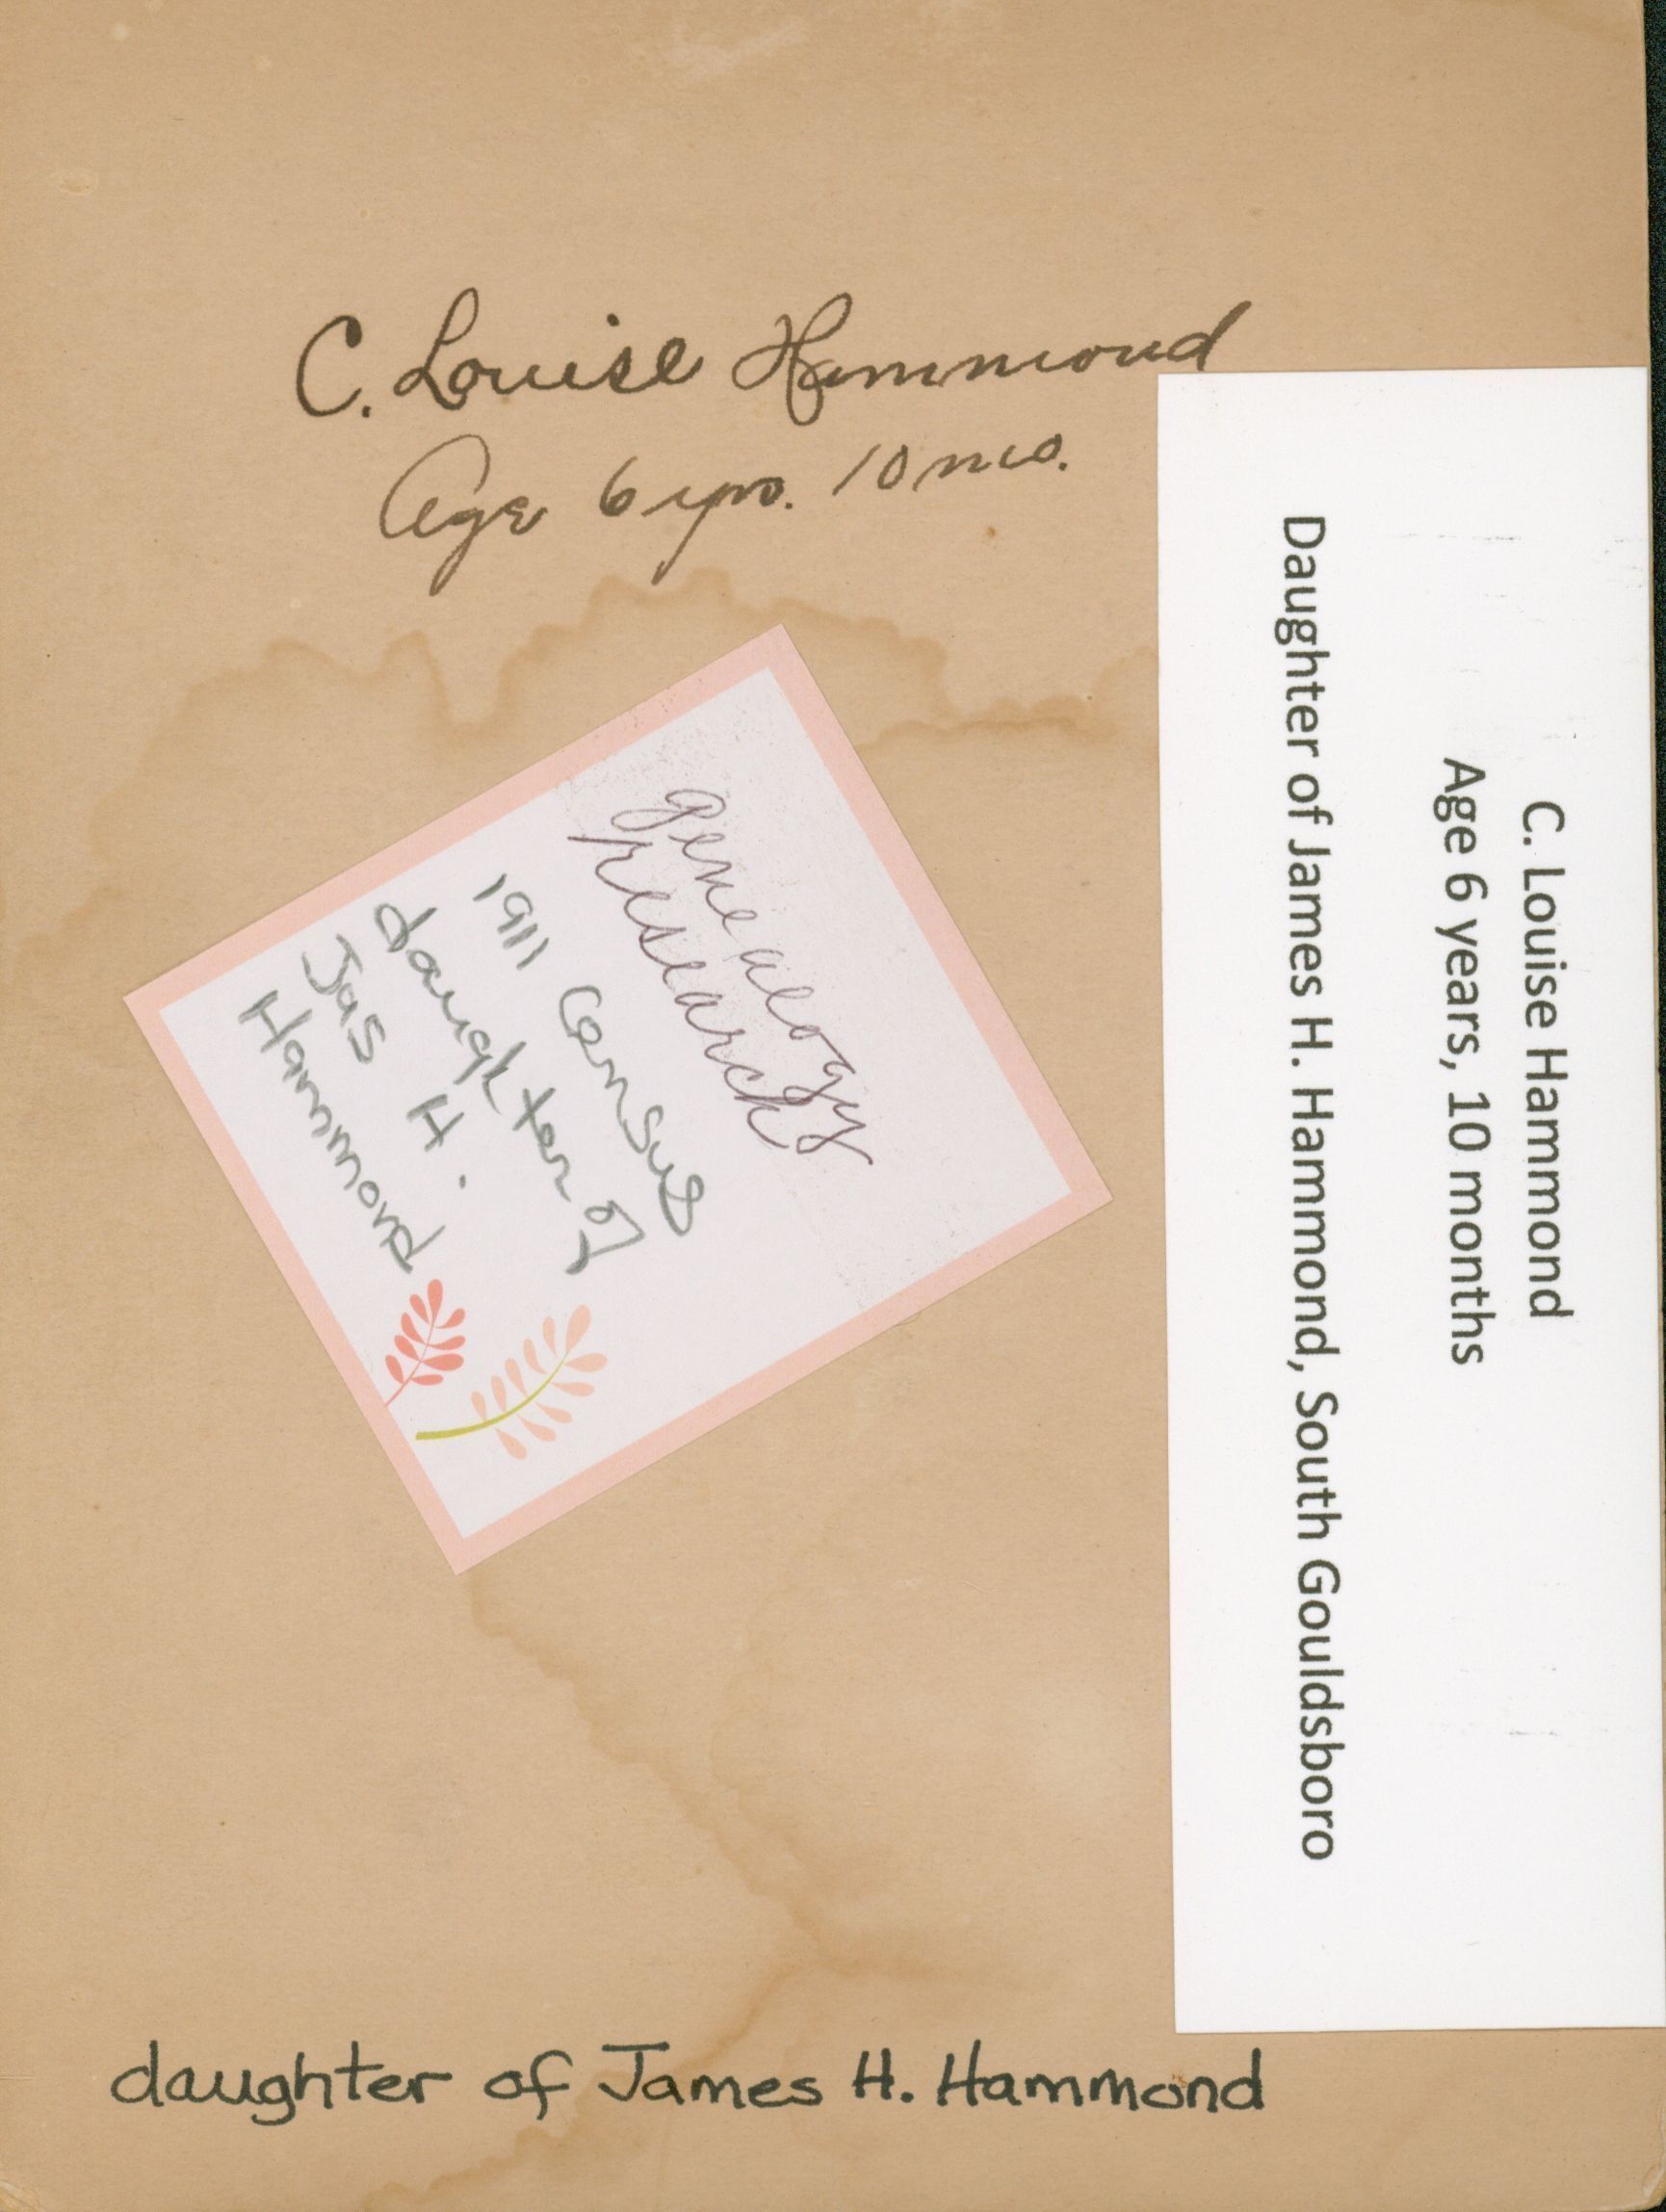 C. Louise Hammond
Age 6 yrs. 10 mos.
genealogy
research
1911 Census
daughter of
Jas H.
Hammond
C. Louise Hammond
Age 6 years, 10 months
Daughter of James H. Hammond, South Gouldsboro
daughter of James H. Hammond